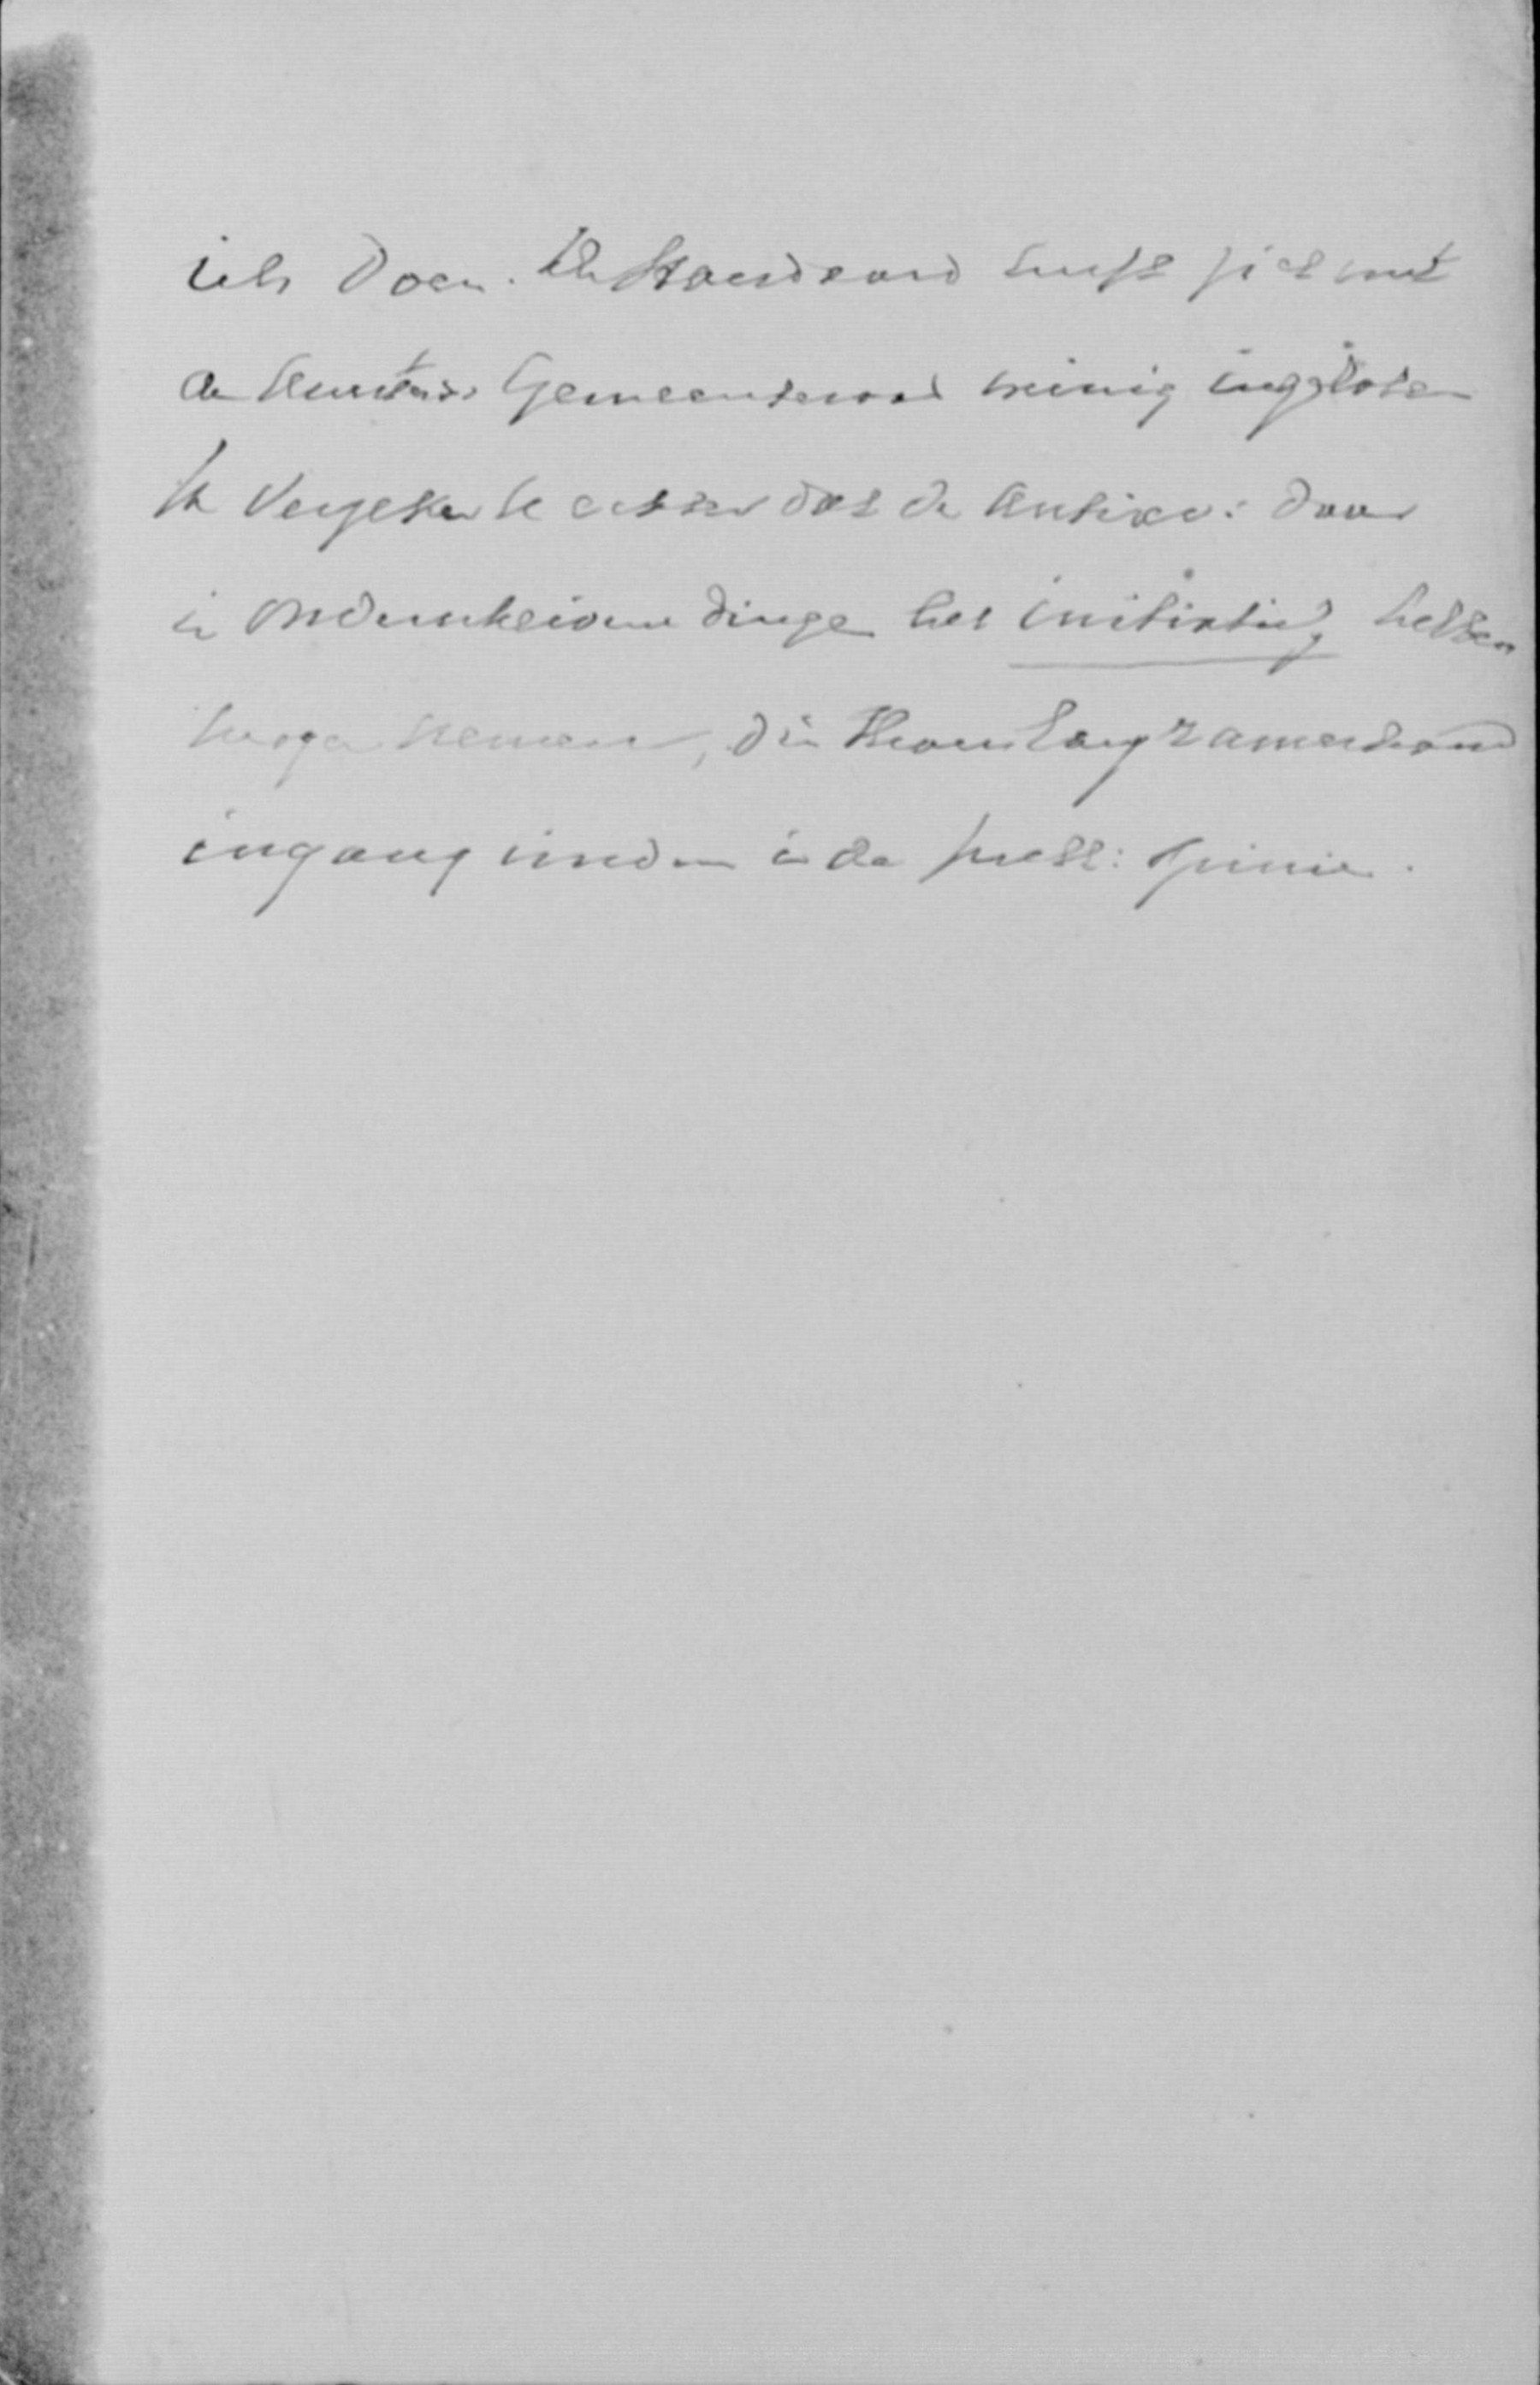 iets doen. De Standaard heeft zich met
de Amsterd. Gemeenteraad weinig ingelaten
Ik verzeker U echter dat de Antirev: daar
in onderscheidene dingen het initiatief hebben
mogen nemen, die thans langzamerhand
ingang vinden in de publ: opinie.